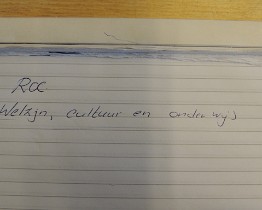 ROC
Welzijn, cultuur en onderwijs